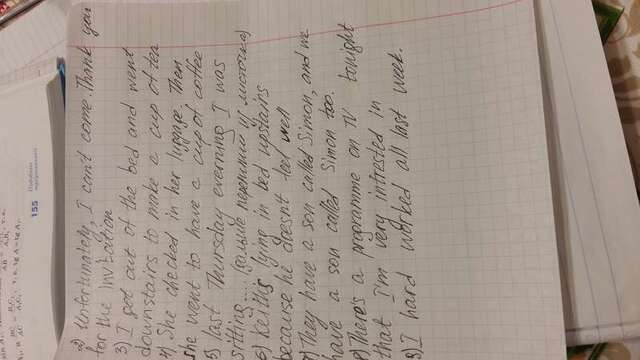 2) Unfortunately, I can't come. Thank you
for the invitation
3) I got out of the bed and went
downstairs to make a cup of tea
4) She checked in her luggage. Then
she went to have a cup of coffee
5) last Thursday evening I was
sitting ....
6) Keith's lying in bed upstairs
because he doesn't feel well
7) They have a son called Simon, and we
have a son called Simon too.
8) There's a programme on TV tonight
that I'm very intrested in
9) I hard worked all last week.
155